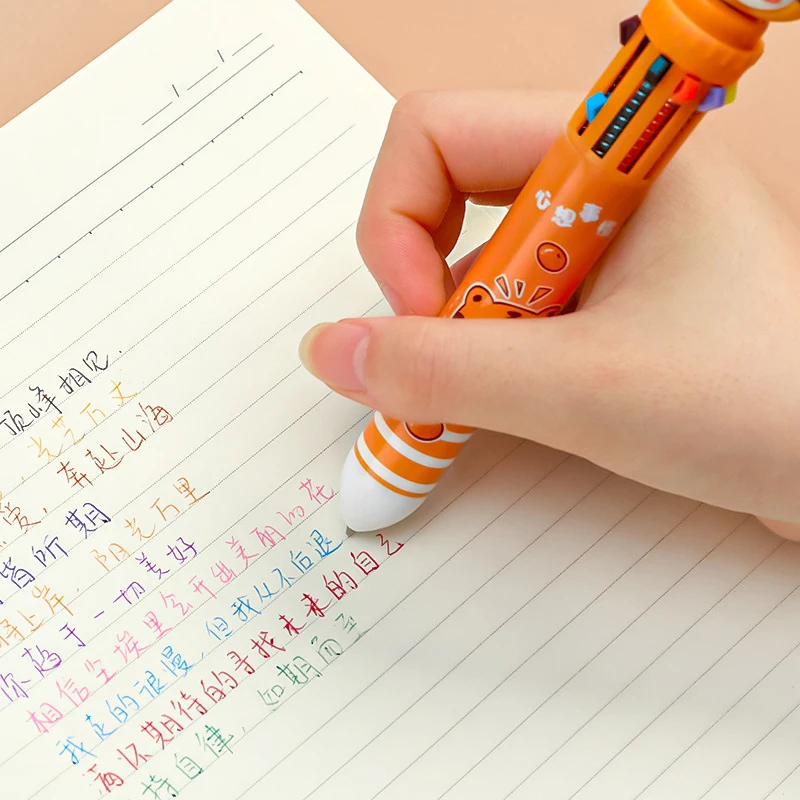 心想事成
顶峰相见.
，光芒万丈
爱，奔赴山海
皆所期
将上岸，阳光万里
你趋于一切美好
相信尘埃里会开出美丽的花
我走的很慢，但我从不后退
满怀期待的寻找未来的自己
持自律，如期而至